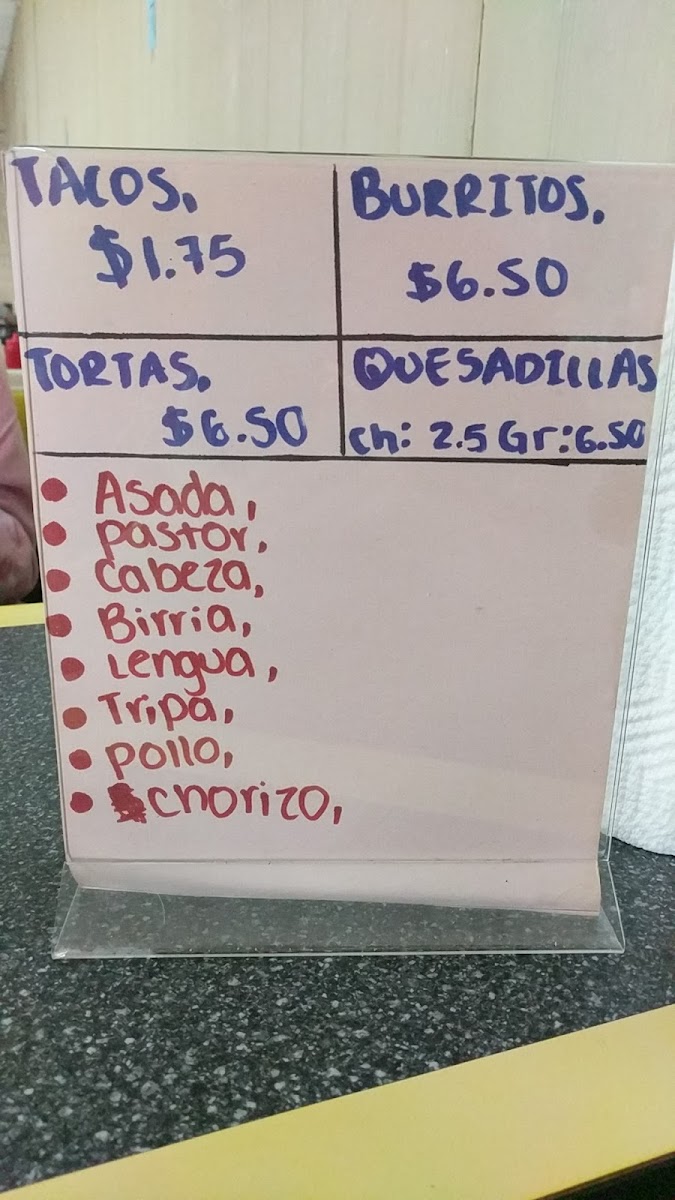 TACOS.
$1.75
BURRITOS.
$6.50
TORTAS.
$6.50
QUESADILLAS
Ch: 2.5 Gr:6.50
• Asada,
• pastor,
• Cabeza,
• Birria,
• Lengua,
• Tripa,
• pollo,
• chorizo,